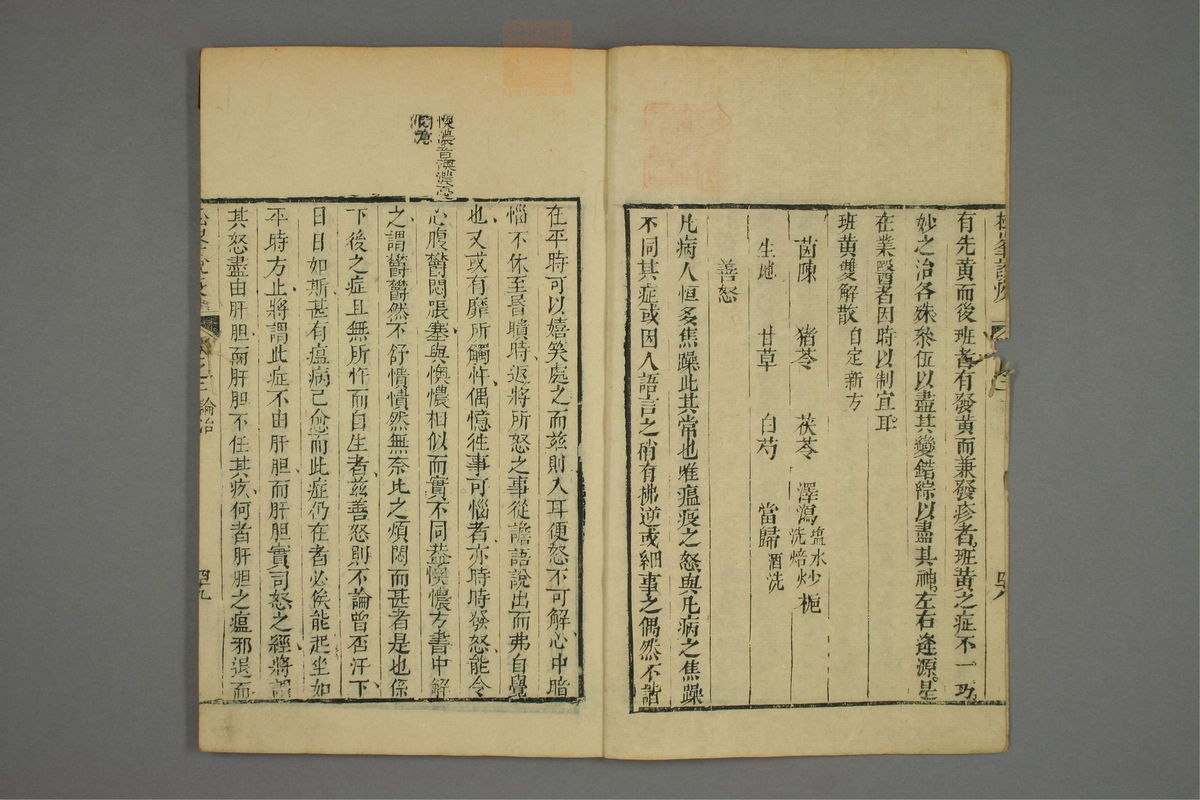 松峯說疫
有先黄而後班者有發黄而兼發疹者班黄之症不一巧
妙之治各殊參伍以盡其變錯綜以盡其神左右逢源是
在業醫者因時以制宜耳
班黄雙解散自定新方
茵陳 猪苓 茯苓 澤瀉塩水炒 梔
洗焙
生地 甘草 白芍 當歸酒洗
善怒
凡病人恒多焦躁此其常也唯瘟疫之怒與凡病之焦躁
不同其症或因人語言之稍有拂逆或細事之偶然不諧
在平時可以嬉笑處之而兹則入耳便怒不可解心中暗
惱不休至昏瞶時返將所怒之事從譫語說出而弗自覺
也又或有靡所觸忤偶憶徃事可惱者亦時時發怒能令
心腹欝悶脹塞與懊憹相似而實不同葢懊憹方書中解
之謂欝欝然不舒憒憒然無奈比之煩悶而甚者是也係
下後之症且無所忤而自生者兹善怒則不論曾否汗下
日日如斯甚有瘟病已愈而此症仍在者必俟能起坐如
平時方止將謂此症不由肝胆而肝胆實司怒之經將謂
其怒盡由肝胆而肝胆不任其疚何者肝胆之瘟邪退而
論治